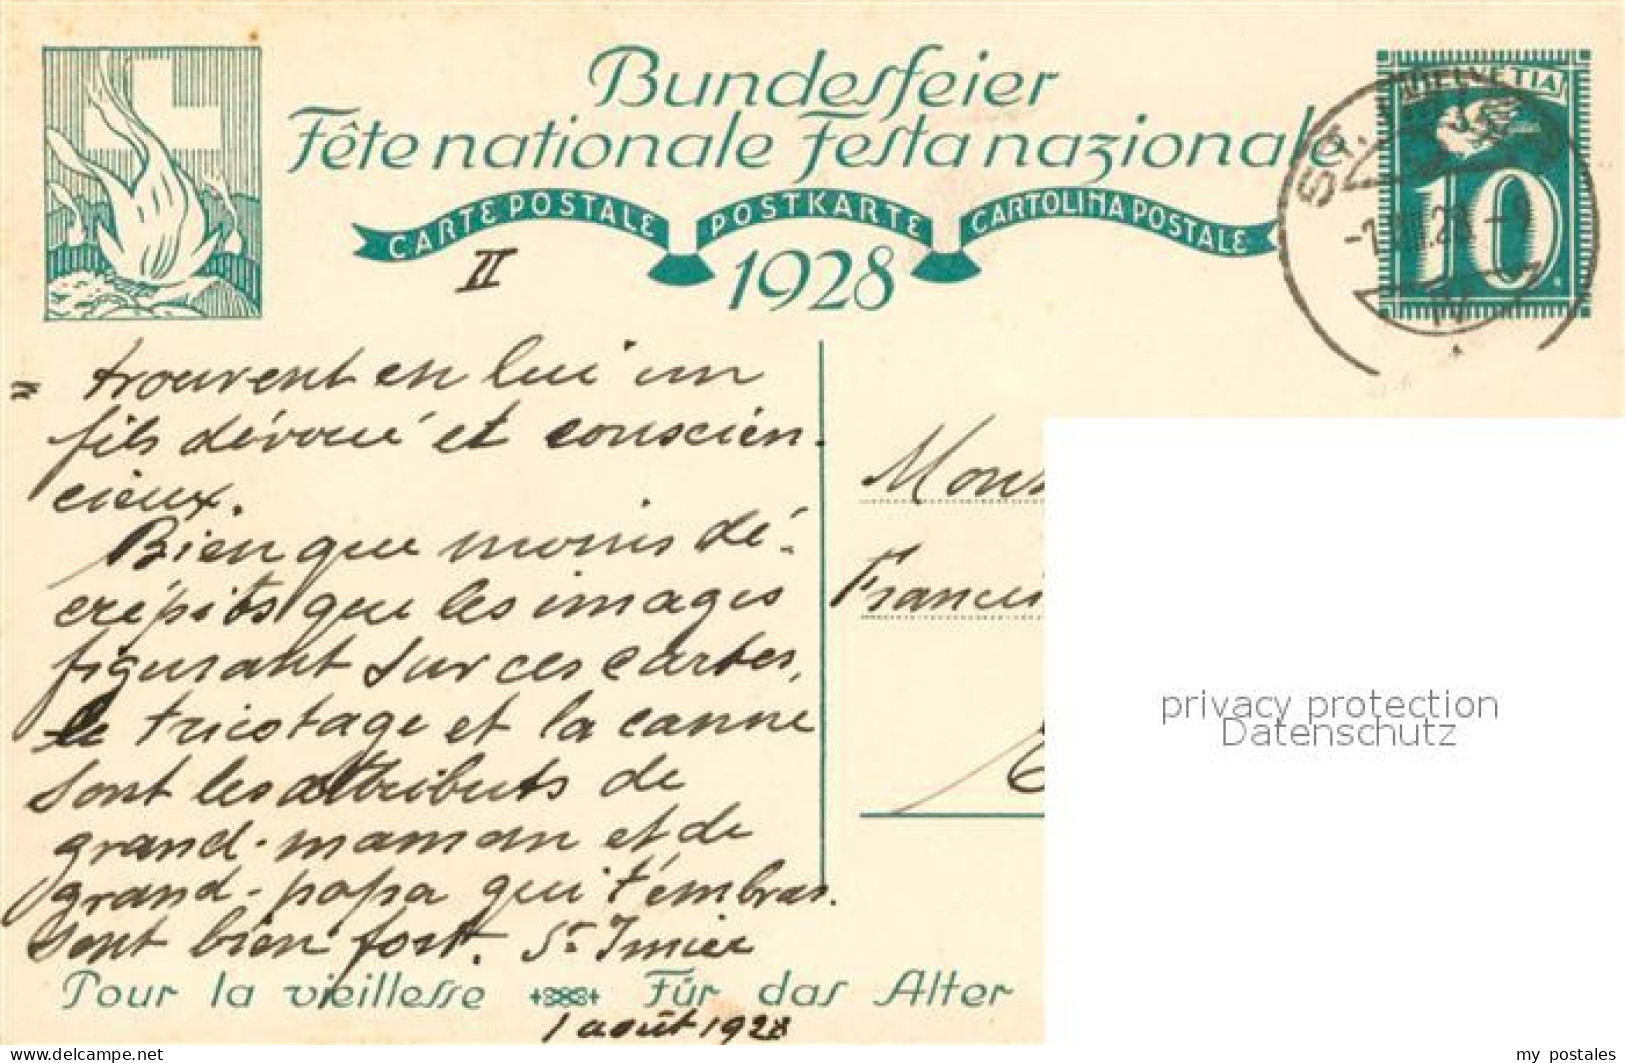 Bundesfeier
Fête nationale Festa nazionale
CARTE POSTALE POSTKARTE CARTOLINA POSTALE
II
1928
HELVETIA
10
= trouvent en lui un
fils dévoué et conscien-
cieux.
Bien que moins dé-
crépits que les images
figurant sur ces cartes,
le tricotage et la canne
sont les attributs de
grand-maman et de
grand-papa qui t'embras-
sent bien fort. St Imier
1 août 1928
Pour la vieillesse Für das Alter
privacy protection
Datenschutz
www.delcampe.net
my_postales